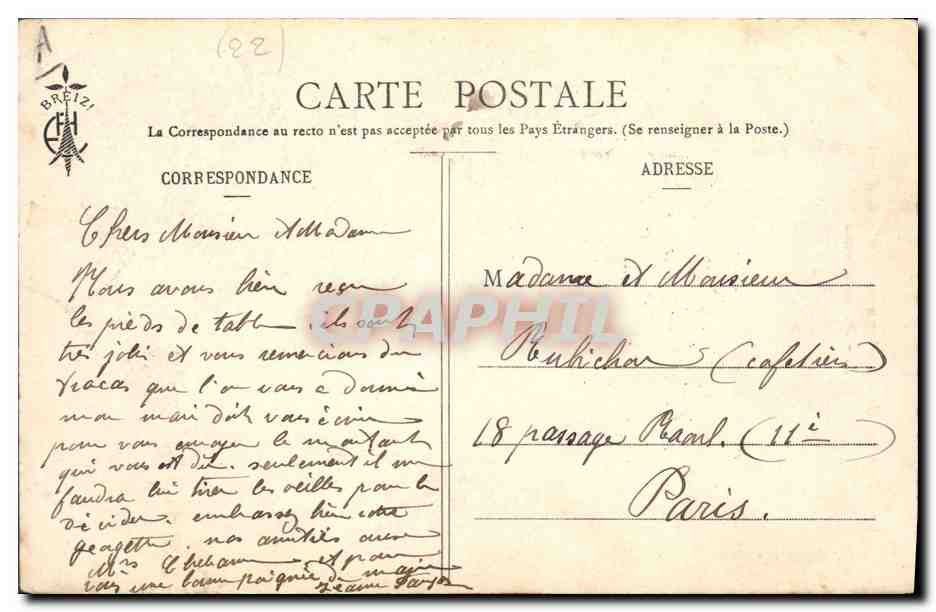 A
(22)
BREIZ!
CARTE POSTALE
La Correspondance au recto n'est pas acceptée par tous les Pays Étrangers. (Se renseigner à la Poste.)
CORRESPONDANCE
ADRESSE
Chers Monsieur et Madame
Nous avons bien reçu
les pieds de table. ils sont
très jolis et vous remercions du
tracas que l'on vous a donné
mon mari doit vous écrire
pour vous envoyer le montant
qui vous est dû. seulement il me
faudra lui tirer les oreilles pour le
décider. embrassez bien votre
nos amitiés aussi
Mrs et pour
vous une bonne poignée de main
Jeanne
Madame et Monsieur
(cafetiers)
18 passage Raoul. (11è)
Paris.
CPAPHIL